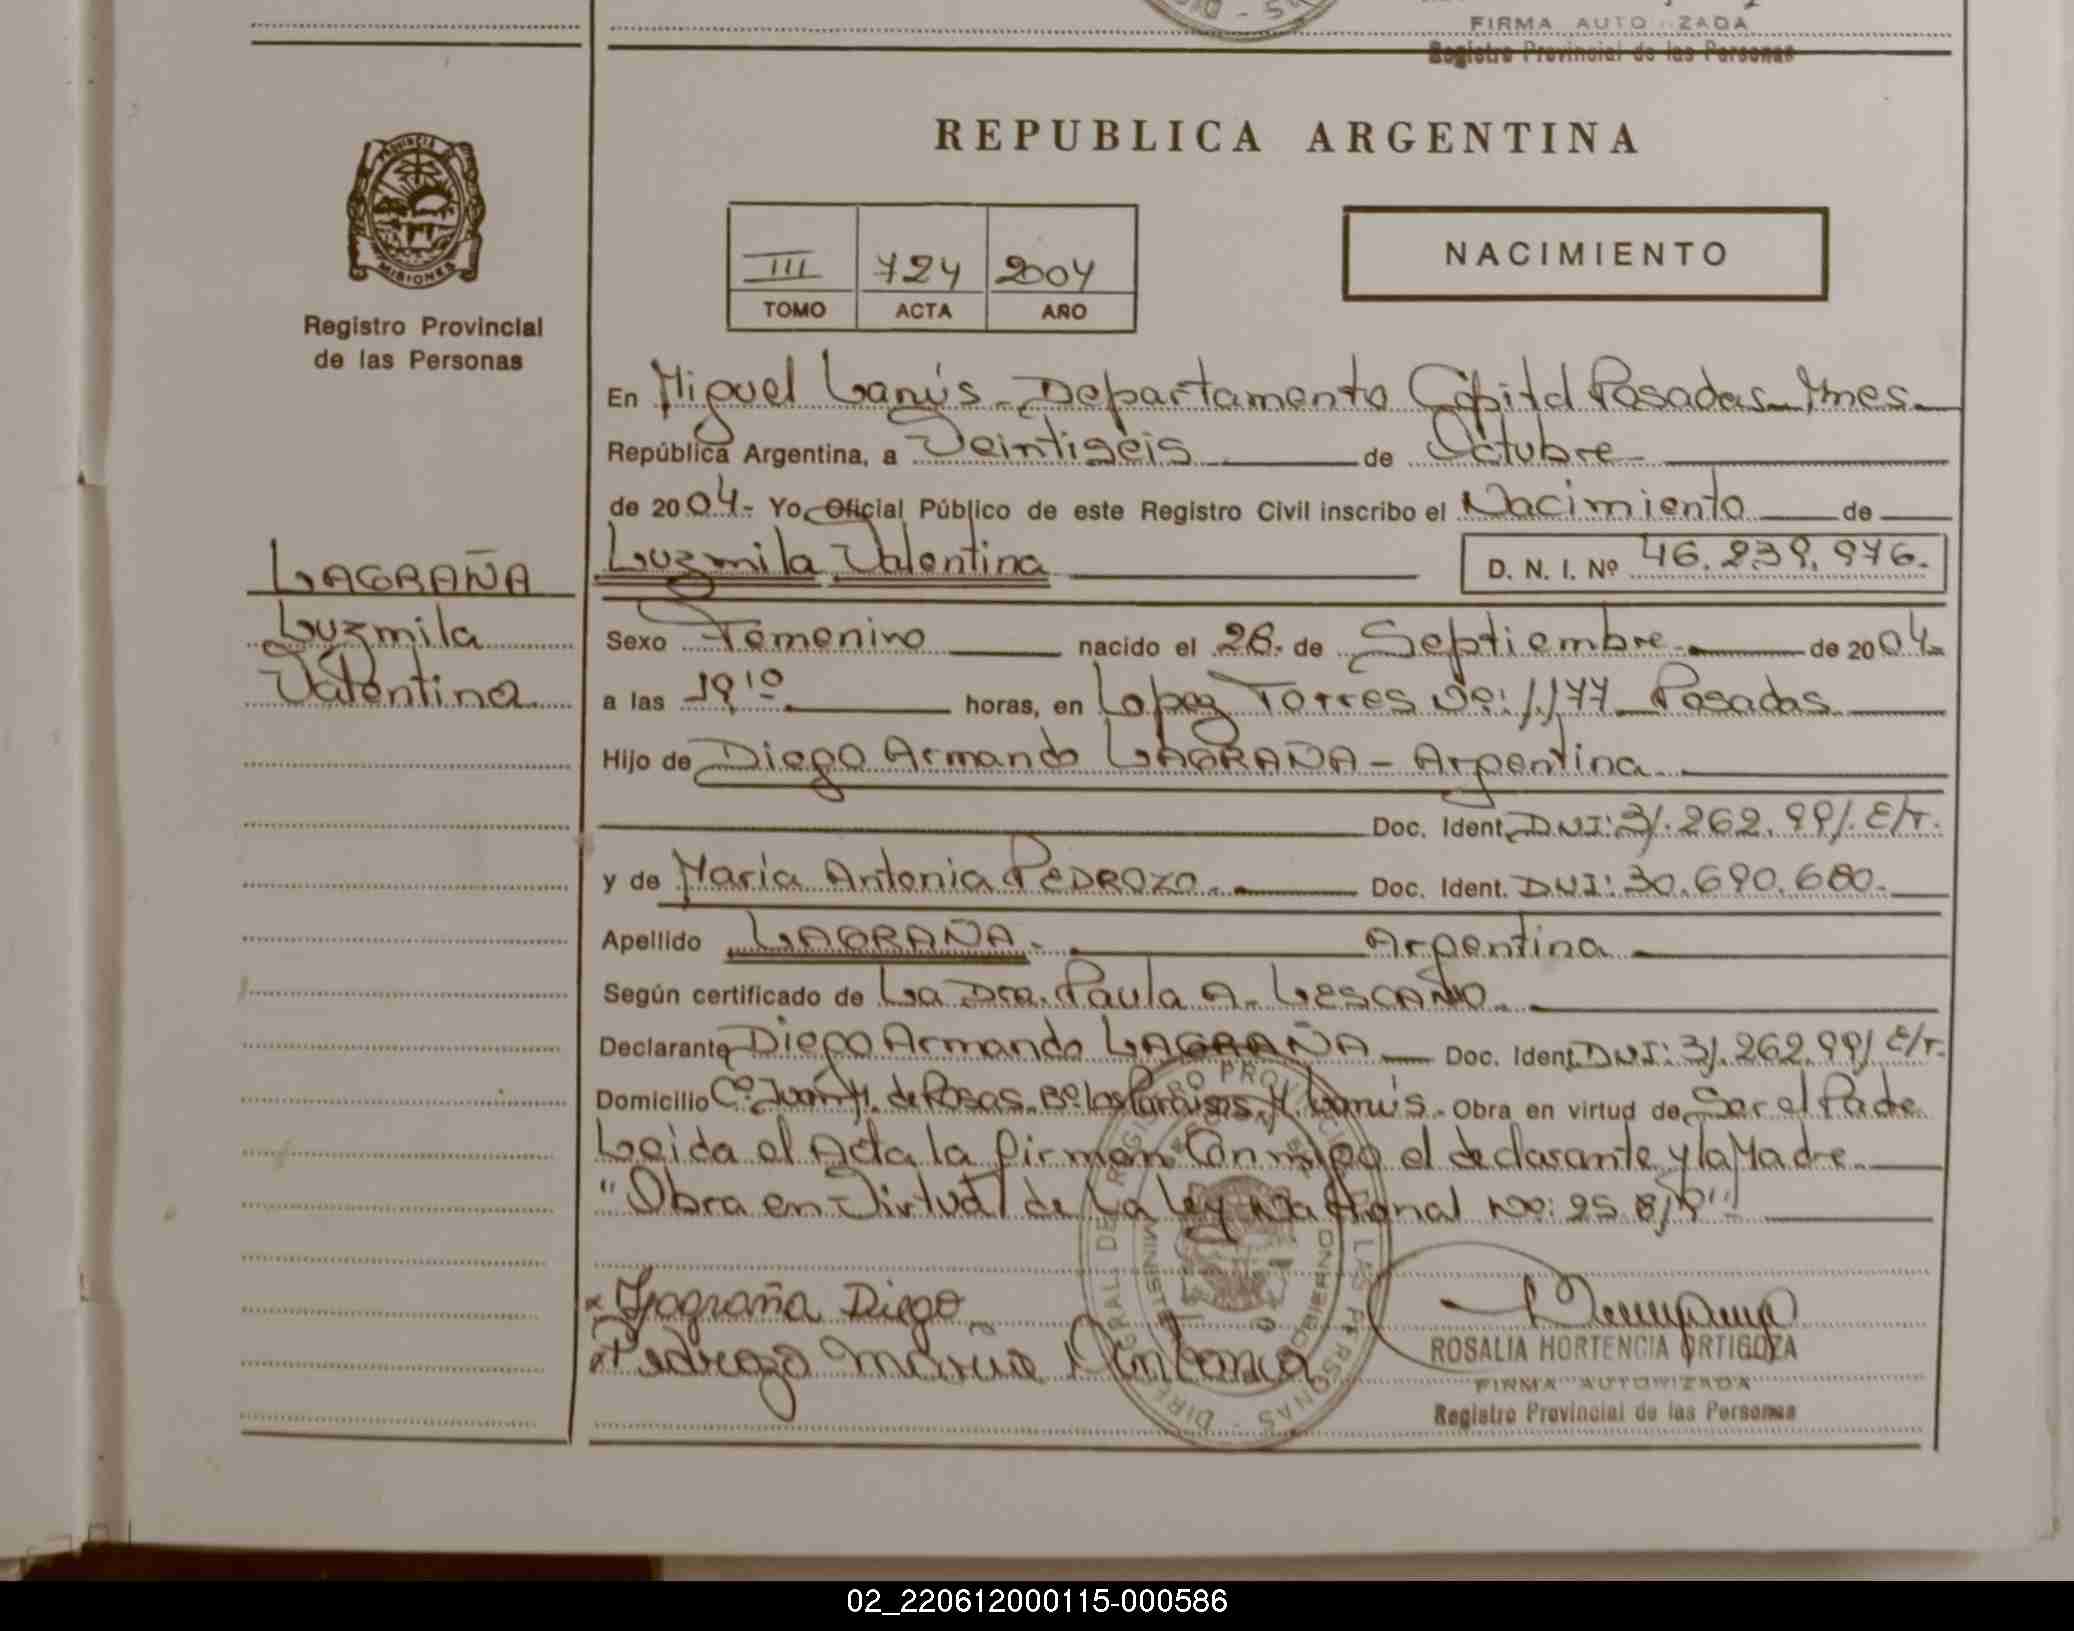 FIRMA AUTO ZADA
Registro Provincial de las Personas
PROVINCIA DE
MISIONES
Registro Provincial
de las Personas
REPUBLICA ARGENTINA
III 724 2004
TOMO ACTA AÑO
NACIMIENTO
En Miguel Lanús - Departamento Capital Posadas - Mnes.
República Argentina, a Veintiseis de Octubre
de 2004.- Yo, Oficial Público de este Registro Civil inscribo el Nacimiento de
LAGRAÑA
Luzmila
Valentina
Luzmila Valentina D. N. I. Nº 46.239.976.
Sexo Femenino nacido el 26. de Septiembre de 2004.
a las 19¹⁰ horas, en Lopez Torres Nº: 1.177 Posadas
Hijo de Diego Armando LAGRAÑA - Argentina
Doc. Ident. DNI: 31.262.991. E/T.
y de Maria Antonia PEDROZO. Doc. Ident. DNI: 30.690.680.
Apellido LAGRAÑA. Argentina
Según certificado de La Dra. Paula A. LESCANO.
Declarante Diego Armando LAGRAÑA Doc. Ident. DNI: 31.262.991 E/T.
Domicilio Cº Juan M. de Rosas Bº Los Paraisos, M. Lanús. Obra en virtud de Ser el Padre
Leida el Acta la firman Conmigo el declarante y la Madre
"Obra en Virtud de La Ley Nacional Nº: 25.819"
x Lagraña Diego
x Pedrozo Maria Antonia
DIRE GRAL DE REGISTRO PROVINCIAL LAS PERSONAS
MINISTE GOBIERNO
ROSALIA HORTENCIA ORTIGOZA
FIRMA AUTORIZADA
Registro Provincial de las Personas
02_220612000115-000586